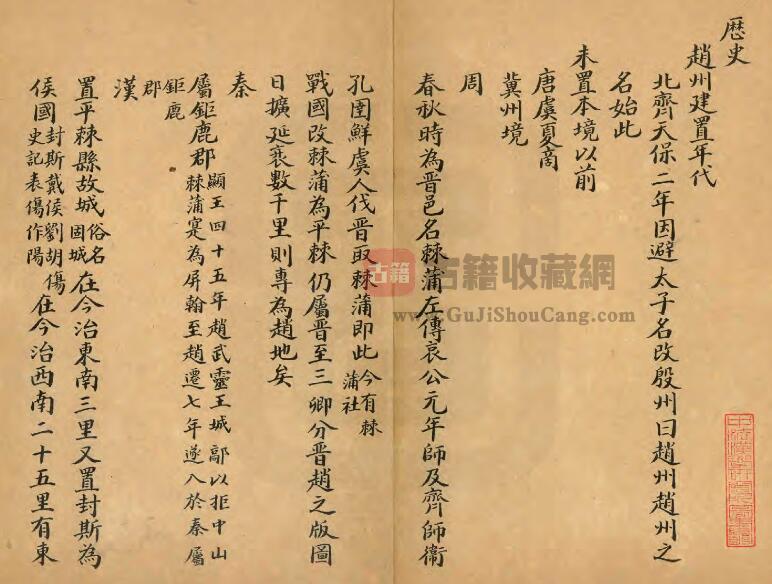 歷史
趙州建置年代
北齊天保二年因避太子名改殷州曰趙州趙州之
名始此
未置本境以前
唐虞夏商
冀州境
周
春秋時為晉邑名棘蒲左傳哀公元年師及齊師衛
孔圉鮮虞人伐晉取棘蒲即此今有棘蒲社
戰國改棘蒲為平棘仍屬晉至三卿分晉趙之版圖
日擴延袤數千里則專為趙地矣
秦
屬鉅鹿郡顯王四十五年趙武靈王城鄗以拒中山棘蒲寔為屏翰至趙遷七年遂入於秦屬
鉅鹿郡
漢
置平棘縣故城俗名固城在今治東南三里又置封斯為
侯國封斯戴侯劉胡傷史記表傷作陽在今治西南二十五里有東
古籍
古籍收藏網
www.GuJiShouCang.com